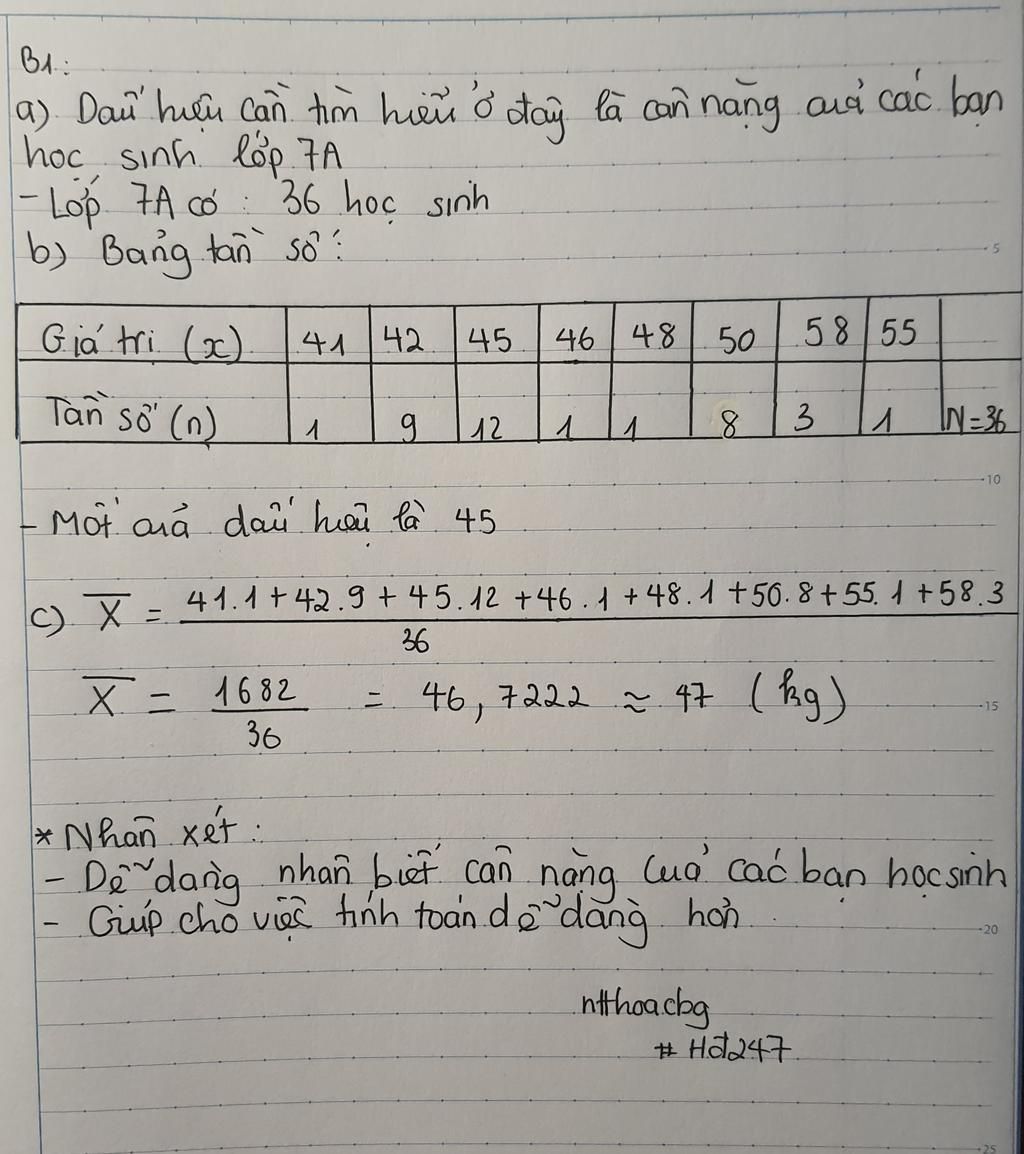 B1:
a) Dấu hiệu cần tìm hiểu ở đây là cân nặng của các bạn
học sinh lớp 7A
- Lớp 7A có : 36 học sinh
b) Bảng tần số :
Giá trị (x) 41 42 45 46 48 50 58 55
Tần số (n) 1 9 12 1 1 8 3 1 N=36
- Mốt của dấu hiệu là 45
c) X̅ = (41.1 + 42.9 + 45.12 + 46.1 + 48.1 + 50.8 + 55.1 + 58.3)/36
X̅ = 1682/36 = 46,7222 ≈ 47 (kg)
* Nhận xét :
- Dễ dàng nhận biết cân nặng của các bạn học sinh
- Giúp cho việc tính toán dễ dàng hơn
ntthoacbg
# Hđ247